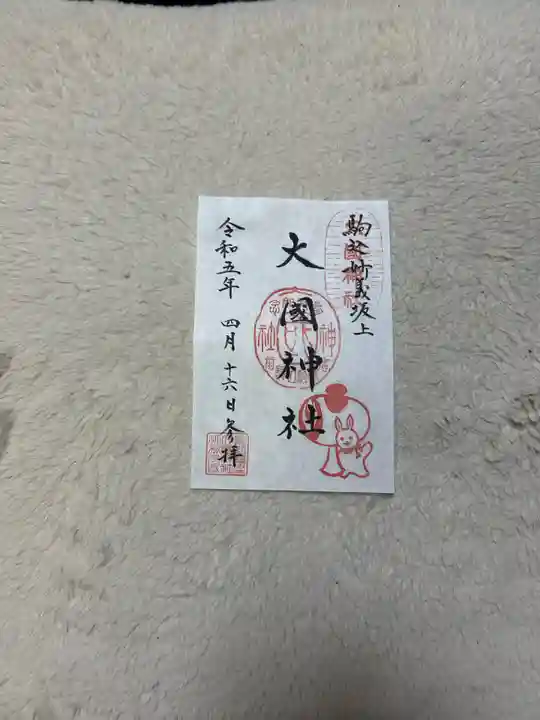 駒込妙義坂上
大國神社
令和五年 四月十六日参拝